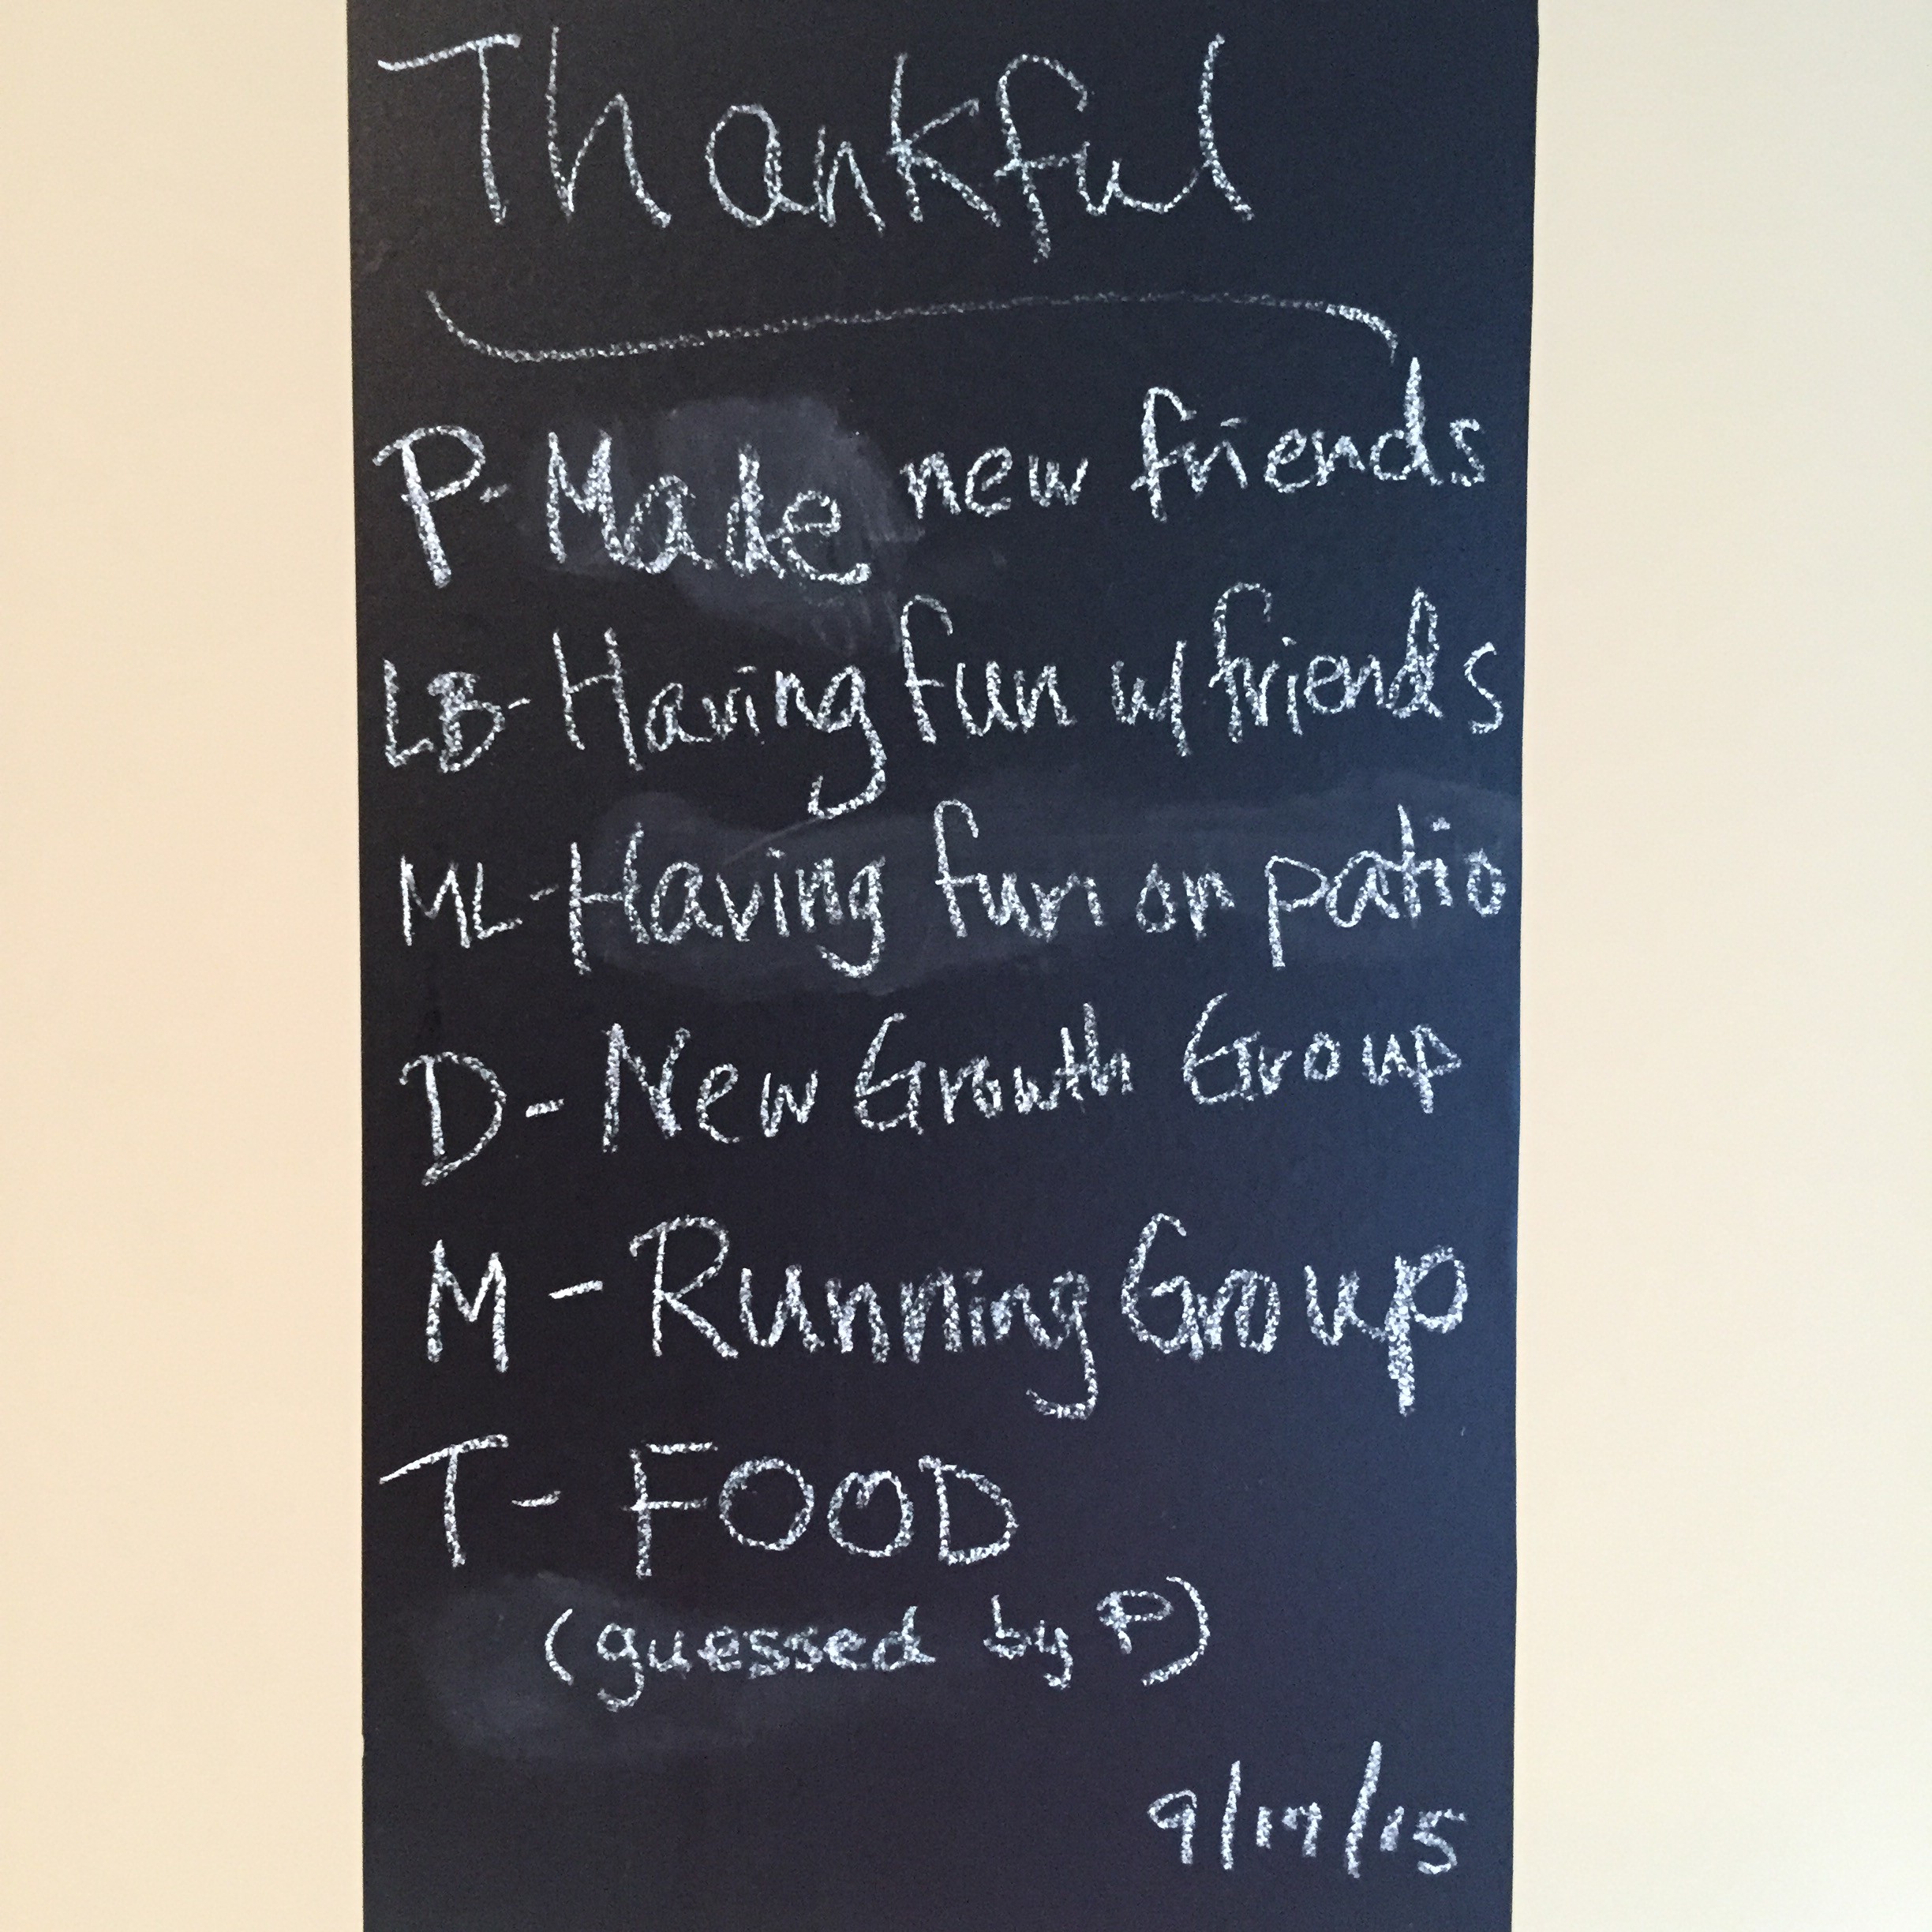 Thankful
P- Make new friends
LB- Having fun w/ friends
ML- Having fun on patio
D- New Growth Group
M- Running Group
T- FOOD
(guessed by P)
9/17/15